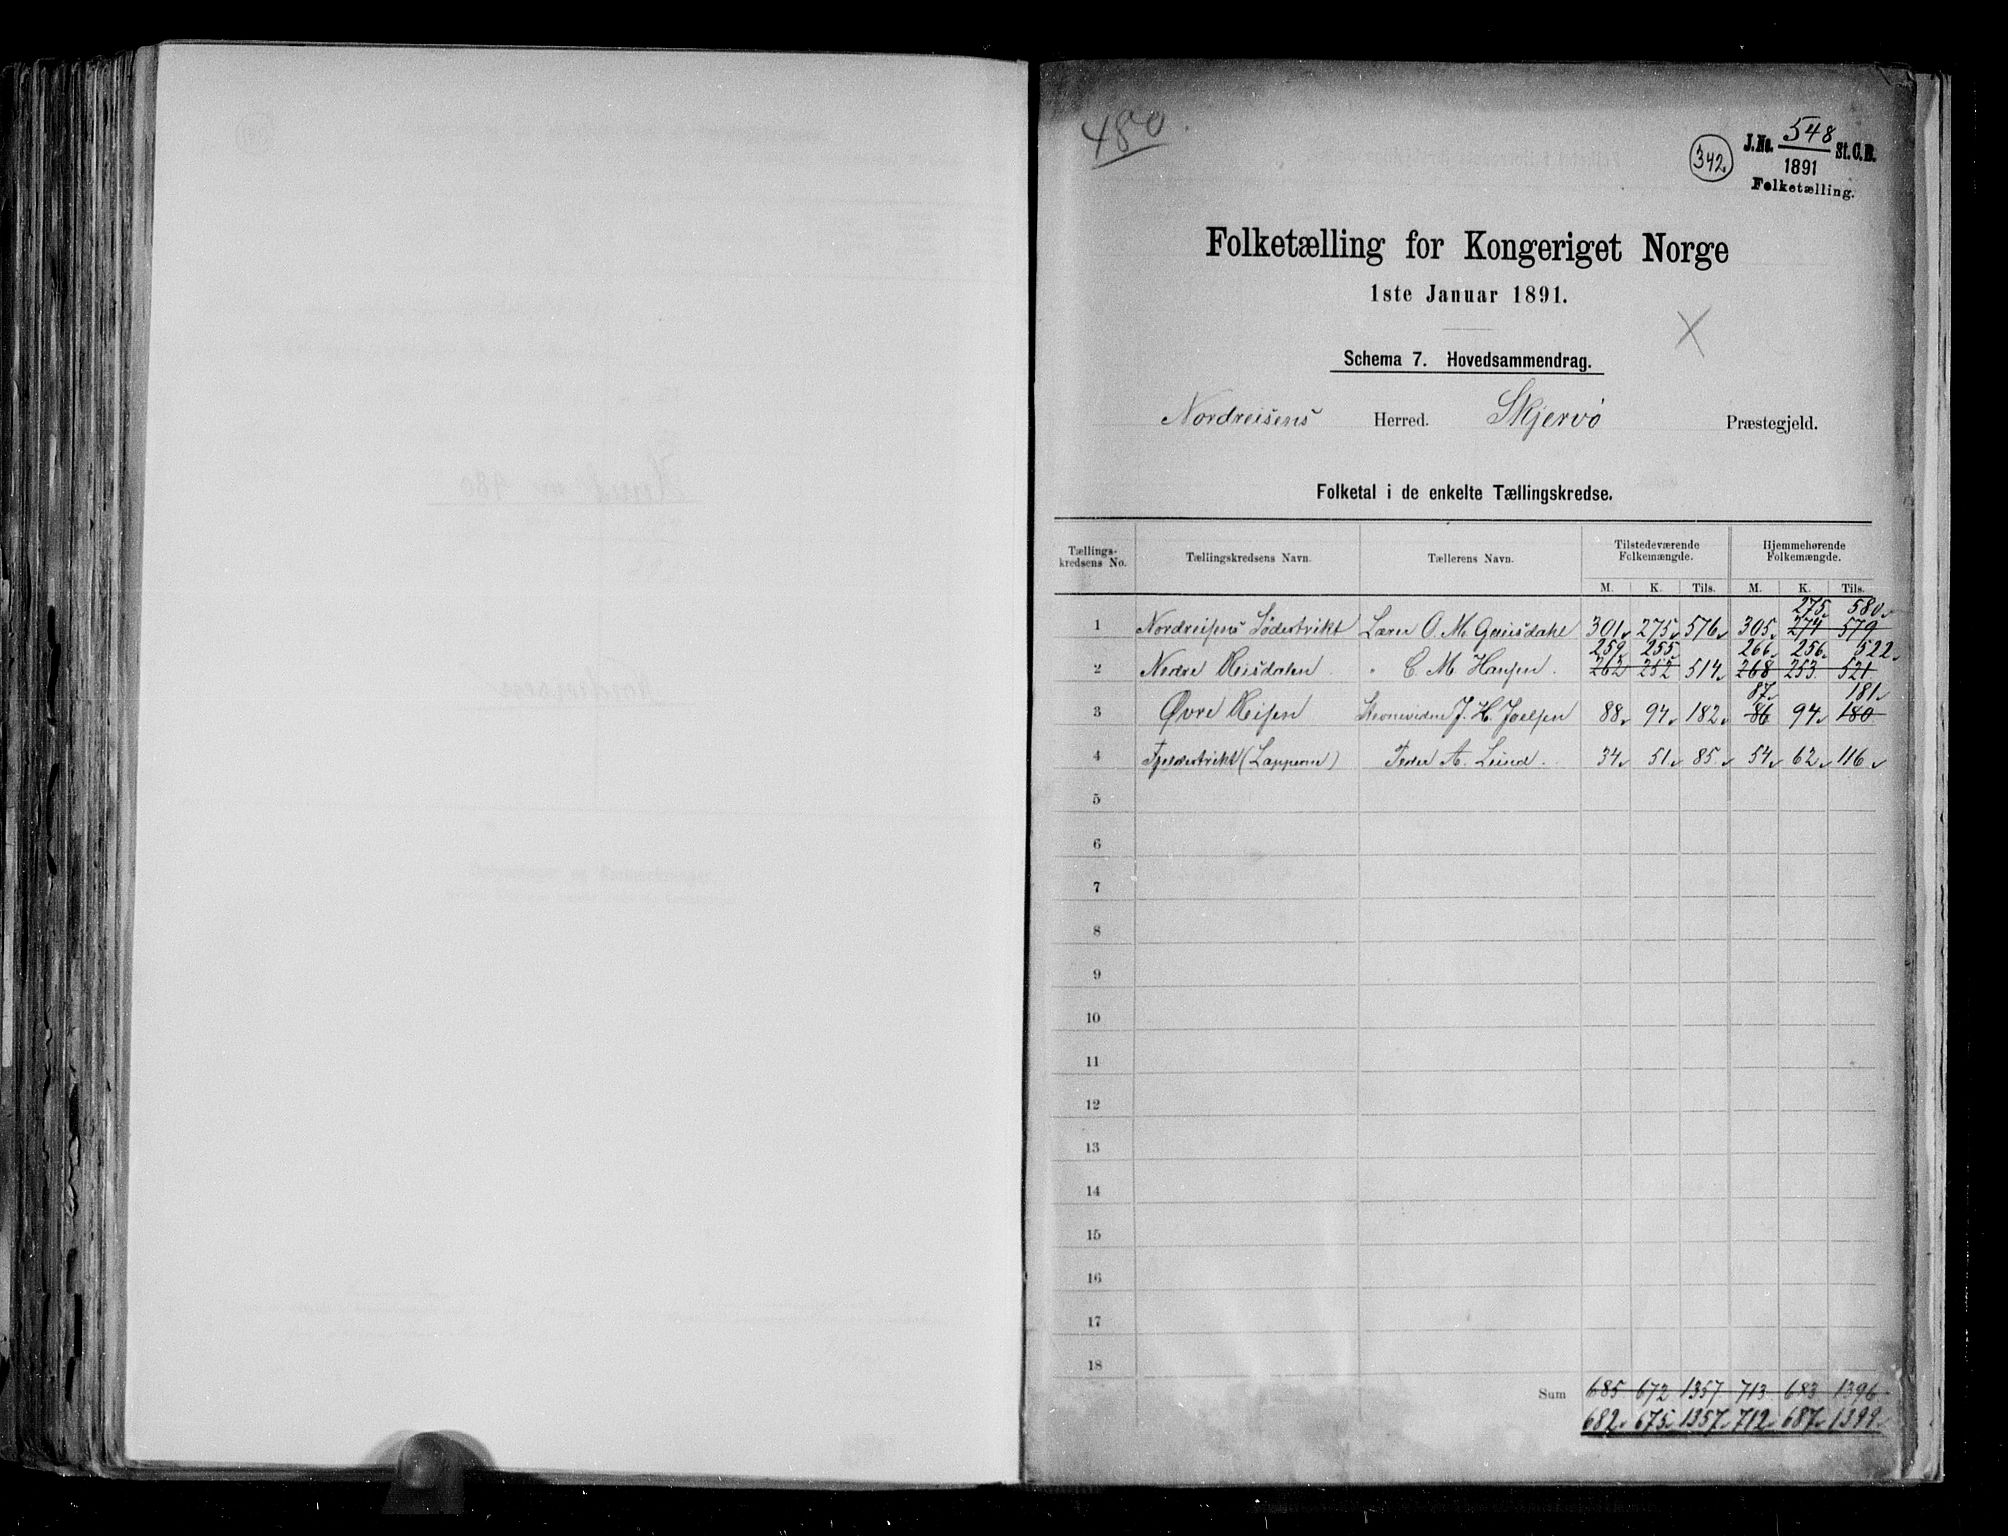 480
342
J.No. 548 St.C.B.
1891
Folketælling.
Folketælling for Kongeriget Norge
1ste Januar 1891.
X
Schema 7. Hovedsammendrag.
Nordreisens Herred. Skjervö Præstegjeld.
Folketal i de enkelte Tællingskredse.
Tællings-kredsens No. Tællingskredsens Navn. Tællerens Navn. Tilstedeværende Folkemængde. Hjemmehørende Folkemængde.
M. K. Tils. M. K. Tils.
275 580
1 Nordreisens Södistrikt Lærer O. M. 301 275 576 305 274 579
259 255 266 256 522
2 Nedre Reisdalen " C. M. Hansen. 262 252 514 268 253 521
87 181
3 Øvre Reisen J. H. Joelsen 88 94 182 86 94 180
4 Fjeldistrikt (Lapperne) Peder A. Lund. 34 51 85 54 62 116
5
6
7
8
9
10
11
12
13
14
15
16
17
18
Sum 685 672 1357 713 683 1396
682 675 1357 712 687 1399